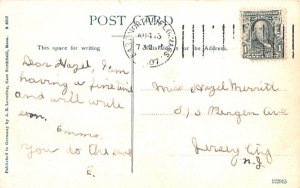 POST CARD
This space for writing
for the Address.
Dear Hazel, I'm
having a fine time
and will write
soon.
Emma.
You to the end
E.
Miss Hazel Merritt
Bergen Ave
Jersey City
N.J.
Published in Germany by A. B. Lovering, East Northfield, Mass.
122915
AUG 5
07